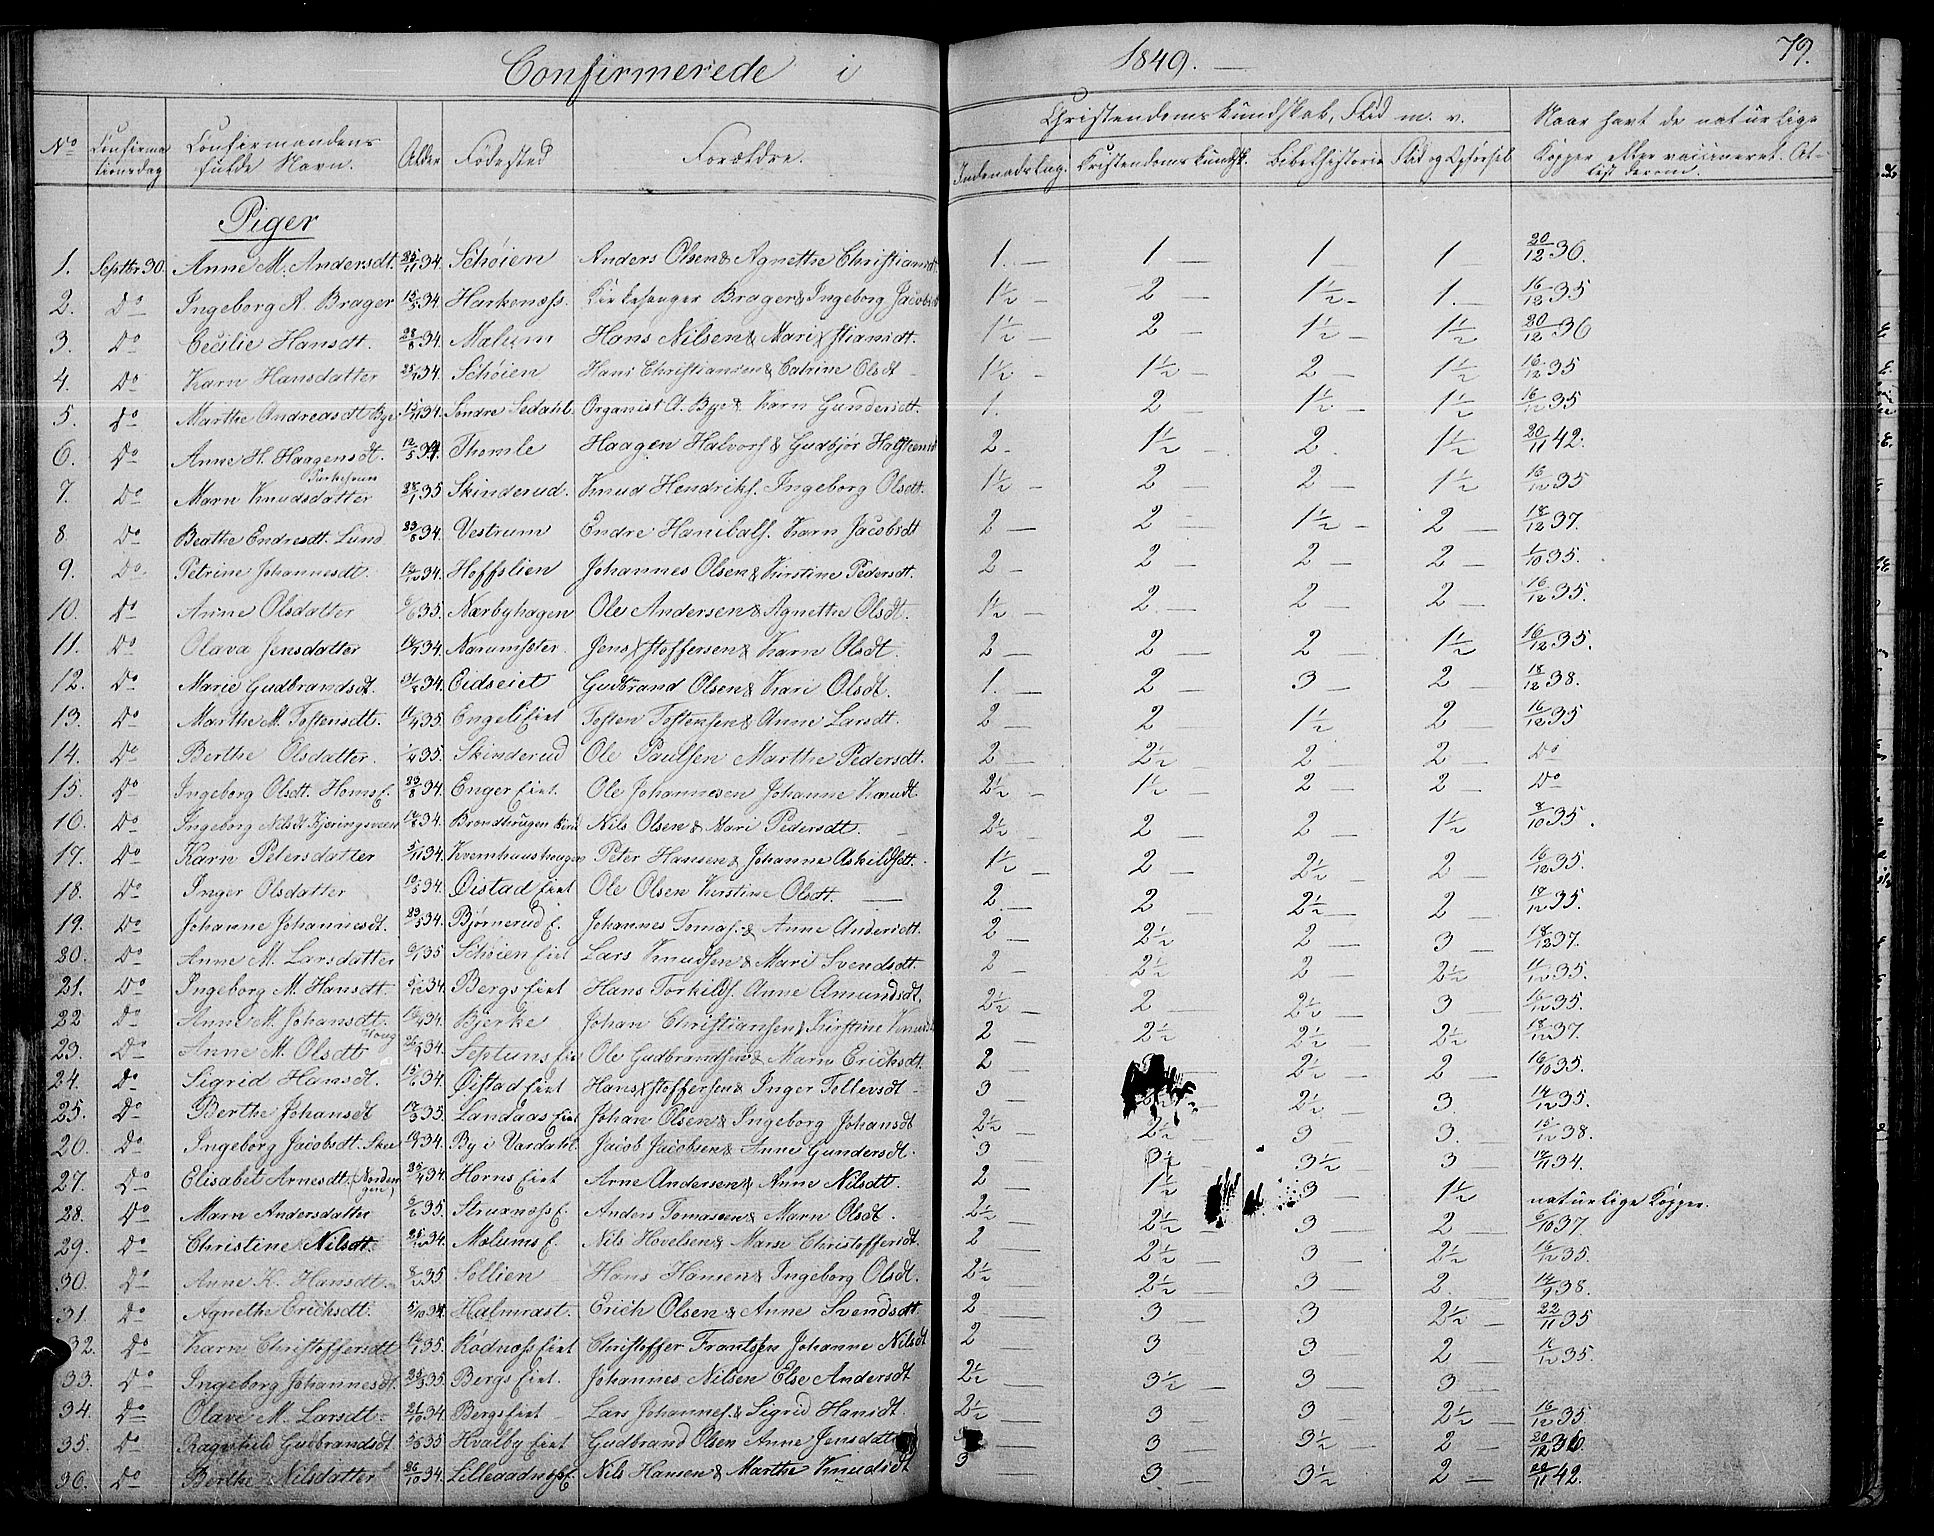 Confirmerede i 1849. — 79.
No Confirmationsdag Confirmandens fulde Navn. Alder Fødested Forældre. Christendomskundskab, Flid m. v. Naar havt de naturlige
Indenadslæsn. Kristendomskundsk. Bibelhistorie Flid og Opførsel Kopper eller vaccineret. Attest derom.
Piger
1. Septbr 30. Anne M. Andersdt. 25/11 34 Schøien Anders Olsen & Agnethe Christiansdt. 1. — 1 — 1 — 1 — 20/12 36.
2. Do Ingeborg A. Brager 15/5 34 Harkenæss. Kirkesanger Brager & Ingeborg Jacobsdt 1½ — 2 — 1½ — 1. — 16/12 35
3. Do Cecilie Hansdt. 28/8 34. Mælum Hans Nilsen & Mari Xstiansdt. 1½ — 2 — 1½ — 1½ — 20/12 36
4. Do Karn Hansdatter 34. Schøien Hans Christiansen & Catrine Olsdt 1½ — 1½ — 2 — 1½ — 16/12 35
5. Do Marthe Andreasdt Bye 15/11 34 Søndre Sedahl Organist A. Bye & Karn Gundersdt. 1. 2 — 1½ — 1½ — 16/12 35
6. Do Anne H. Haagensdt. 12/5 34 Thomle Haagen Halvors. & Gudbjør 2. 1½ — 2. 1½ — 20/11 42.
7. Do Marn Knudsdatter 28/1 35 Skinderud. Knud Hendriks. Ingeborg Olsdt. 1½ — 2 — 2 — 1½ — 16/12 35
8. Do Beathe Endresdt. Lund 23/8 34. Vestrum Endre Hanibals. Karn Jacobsdt 2 — 2 — 1½ — 2 — 18/12 37.
9. Do Petrine Johannesdt. 34. Hoffslien Johannes Olsen & Kirstine Pedersdt. 2 — 2 — 2 — 2 — 1/10 35.
10. Do Anne Olsdatter 35. Nærbyhagen Ole Andersen & Agnethe Olsdt. 1½ — 2. — 2 — 2 — 16/12 35.
11. Do Olava Jensdatter 34. Narumseter. Jens Xstoffersen & Karn Olsdt. 2 — 2 — 2 — 1½ — 16/12 35.
12. Do Marie Gudbrandsdt. 34. Eidseiet Gudbrand Olsen & Kari Olsdt. 1. — 2 — 3 — 2 — 18/12 38.
13. Do Marthe M. Tostensdt. 35. Engeli Eiet Tosten Tostensen & Anne Larsdt. 2 — 2 1½ — 2 — 16/12 35
14. Do Berthe Olsdatter. 35. Skinderud Ole Paulsen Marthe Pedersdt. 2 — 2½ — 2 — 2 — Do
15. Do Ingeborg Olsdt. Homs E. 23/8 34. Enger Eiet. Ole Johannesen Johanne Knudt. 2½ — 1½ — 2 2 — Do
16. Do Ingeborg Nilsdt Kjeringsveen 34. Nils Olsen & Mari Pedersdt. 2½ — 2 — 2 — 1½ — 8/10 35.
17. Do Karn Petersdatter 5/11 34. Kvernhaushaugen Peter Hansen & Johanne Askildsdt. 1½ — 2 — 2½ — 2 — 16/12 35.
18. Do Inger Olsdatter 34. Øistad Eiet Ole Olsen Kirstine Olsdt. — 2. — 2 — 2½ — 2 — 35.
19. Do Johanne Johannesdt. 34. Bjørnerud E. Johannes Tomas. & Anne Andersdt. 2 — 2½ — 2 — 3 — 18/12 37.
20. Do Anne M. Larsdatter 35 Schøien Eiet Lars Knudsen & Mari Svendsdt. 2 — 2½ — 2 — 2½ — 35.
21. Do Ingeborg M. Hansdt. 34. Bergs Eiet Hans Torkilds. Anne Amundsdt. 2½ — 2 — 2½ — 3 — 16/12 35.
22 Do Anne M. Johansdt. 34. Bjerke Johan Christiansen & Kirstine Knudsdt 2 2½ — 2½ — 2½ — 18/12 37.
23. Do Anne M. Olsdt Houg 34. Septuns Eiet Ole Gudbrandsen & Marn Ericksdt. 2 — 2½ — 2 — 16/10 35.
24. Do Sigrid Hansdt. 34. Øistad Eiet Hans Xstoffersen & Inger Tellersdt — 3 — 2½ — 3 — 35.
25. Do Berthe Johansdt 35. Landaas Eiet Johan Olsen & Ingeborg Johansdt 2½ — 2½ — 3 — 3. — 15/12 38.
26. Do Ingeborg Jacobsdt. Skee 34. By i Vardahl. Jacob Jacobsen & Anne Gundersdt. 3 — 3½ 3½ — 3 — 34.
27. Do Elisabet Arnesdt. (Nordengen) 34. Horns Eiet Arne Andersen & Anne Nilsdt. 2 — 1½ 3 — 1½ — naturlige Kopper.
28. Do Marn Andersdatter 35. Struxnæss E. Anders Tomassen & Marn Olsdt. 2½ — 2½ — 3 — 2 — 6/10 37.
29. Do Christine Nilsdt. 34. Mælums E. Nils Hovelsen & Marn Christoffersdt. 2 2½ — 3 2½ — 16/12 35.
30. Do Anne K. Hansdt. 35 Sollien Hans Hansen & Ingeborg Olsdt. 2½ — 2½ — 3 — 2. — 38.
31. Do Agnethe Ericksdt. 5/10 34 Halmrast. Erich Olsen & Anne Svendsdt. 2 — 3 3 2½ — 22/11 35
32. Do Karn Christoffersdt 35. Rødnæss Eiet Christoffer Frantsen Johanne Nilsdt 2 — 3 3 2 — 16/12 35.
33. Do Ingeborg Johannesdt. 35. Bergs Eiet. Johannes Nilsen Else Andersdt 2½ — 3½ — 3 — 3 —
34. Do Olave M. Larsdt. 21/10 34. Bergs Eiet Lars Johannes. & Sigrid Hansdt. 2½ — 3 3 — 2½ — 16/12 35.
35. Do Ragnhild Gudbrandsdt. 35 Hvalby Eiet Gudbrand Olsen Anne Jensdatter — 3 — 3½ — 2 — 20/12 36.
36. Do Berthe Nilsdatter 26/10 34. Lilleaadnæss E. Nils Hansen & Marthe Knudsdt 3 — 3 — 3½ — 2 — 22/11 42.